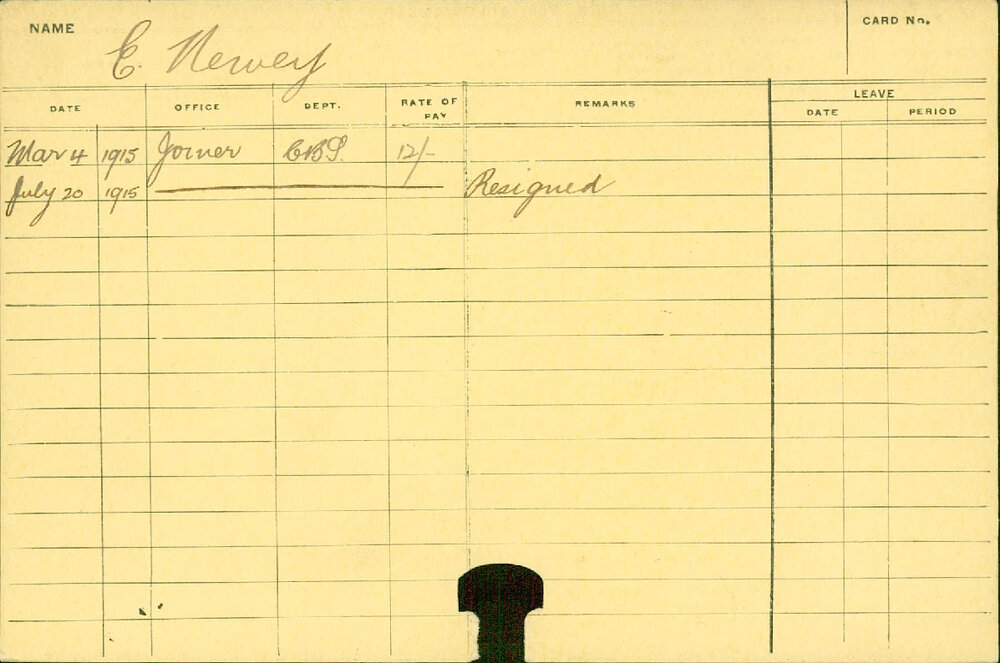 NAME E. Newey CARD No.
DATE OFFICE DEPT. RATE OF PAY REMARKS LEAVE
DATE PERIOD
Mar 4 1915 Joiner C.B.S. 12/-
July 20 1915 Resigned